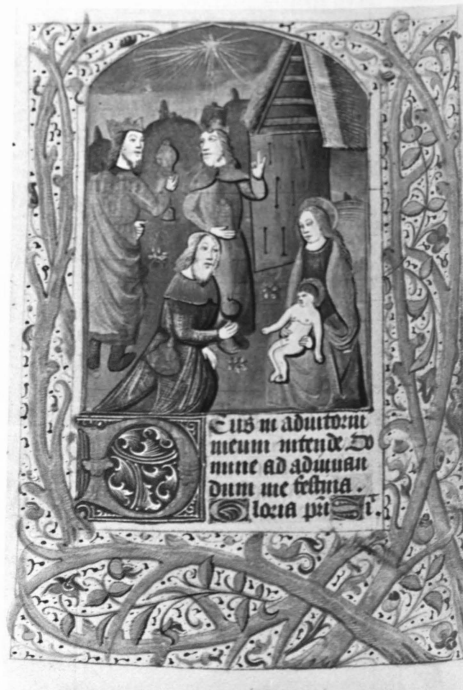 Deus in adiutoriu
meum intende Do
mine ad adiuuan
dum me festina.
Gloria pri